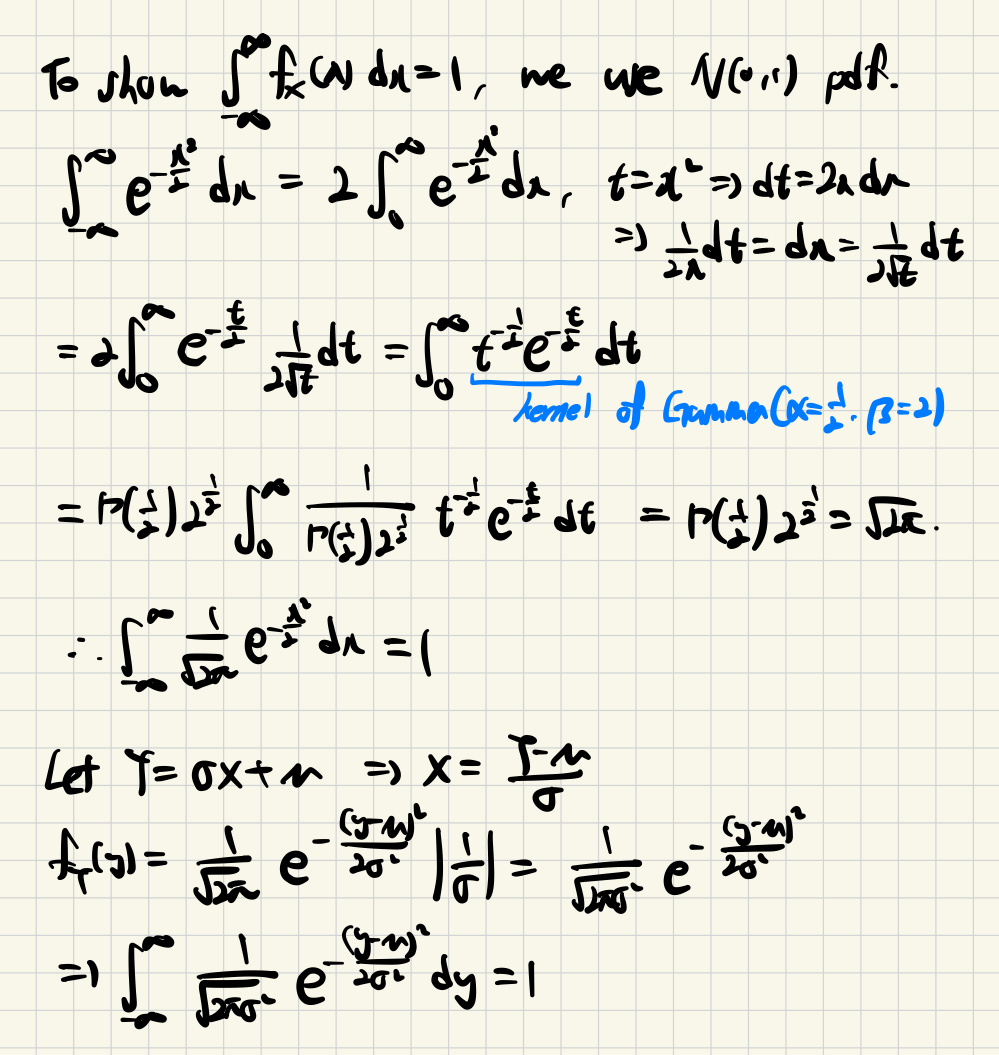 To show ∫_{-∞}^{∞} f_X(x) dx = 1, we use N(0,1) pdf.
∫_{-∞}^{∞} e^{-x²/2} dx = 2∫_0^∞ e^{-x²/2} dx, t = x² ⇒ dt = 2x dx
⇒ 1/(2x) dt = dx = 1/(2√t) dt
= 2∫_0^∞ e^{-t/2} 1/(2√t) dt = ∫_0^∞ t^{-1/2} e^{-t/2} dt
kernel of Gamma(α=1/2, β=2)
= Γ(1/2) 2^{1/2} ∫_0^∞ 1/(Γ(1/2) 2^{1/2}) t^{-1/2} e^{-t/2} dt = Γ(1/2) 2^{1/2} = √(2π).
∴ ∫_{-∞}^{∞} 1/√(2π) e^{-x²/2} dx = 1
Let Y = σX + μ ⇒ X = (Y-μ)/σ
f_Y(y) = 1/√(2π) e^{-(y-μ)²/(2σ²)} |1/σ| = 1/√(2πσ²) e^{-(y-μ)²/(2σ²)}
⇒ ∫_{-∞}^{∞} 1/√(2πσ²) e^{-(y-μ)²/(2σ²)} dy = 1